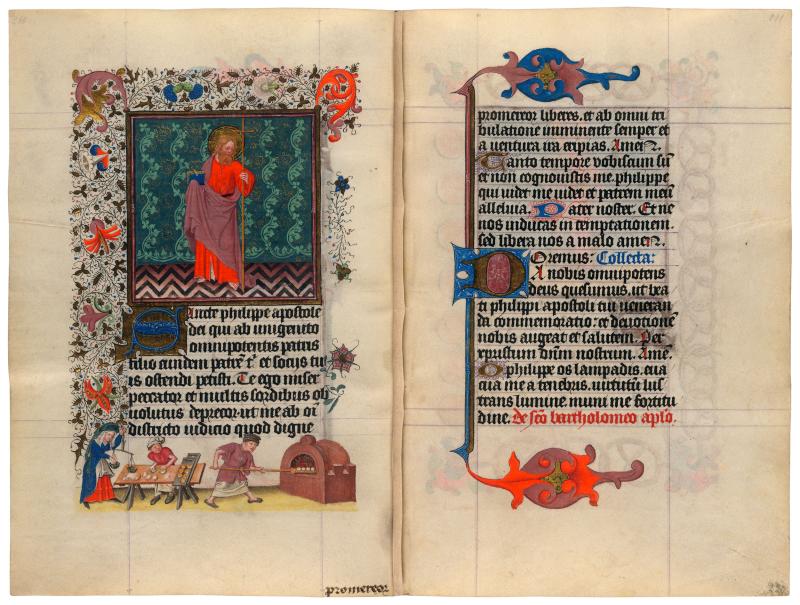 Sancte philippe apostole
dei qui ab unigenito
omnipotentis patris
filio eundem patrē t̄ et socijs tu
is ostendi petisti. Te ego miser
peccator et multis sordibus ob
volutus deprecor ut me ab oī
districto iudicio quod digne
promereor
promereor liberes. et ab omni tri
bulatione imminente semper et
a ventura ira eripias. Amen.
Tanto tempore vobiscum sū
et non cognovistis me. philippe
qui videt me videt et patrem meū
alleluia. Pater noster. Et ne
nos inducas in temptationem.
sed libera nos a malo amen.
Oremus: Collecta:
Da nobis omnipotens
deus quesumus. ut bea
ti philippi apostoli tui veneran
da commemoratio: et devotionē
nobis augeat et salutem. Per
xpristum dn̄m nostrum. Amē.
O philippe os lampadis. eua
cua me a tenebris. virtutum lus
trans lumine muni me fortitu
dine. De sc̄o bartholomeo aplo.